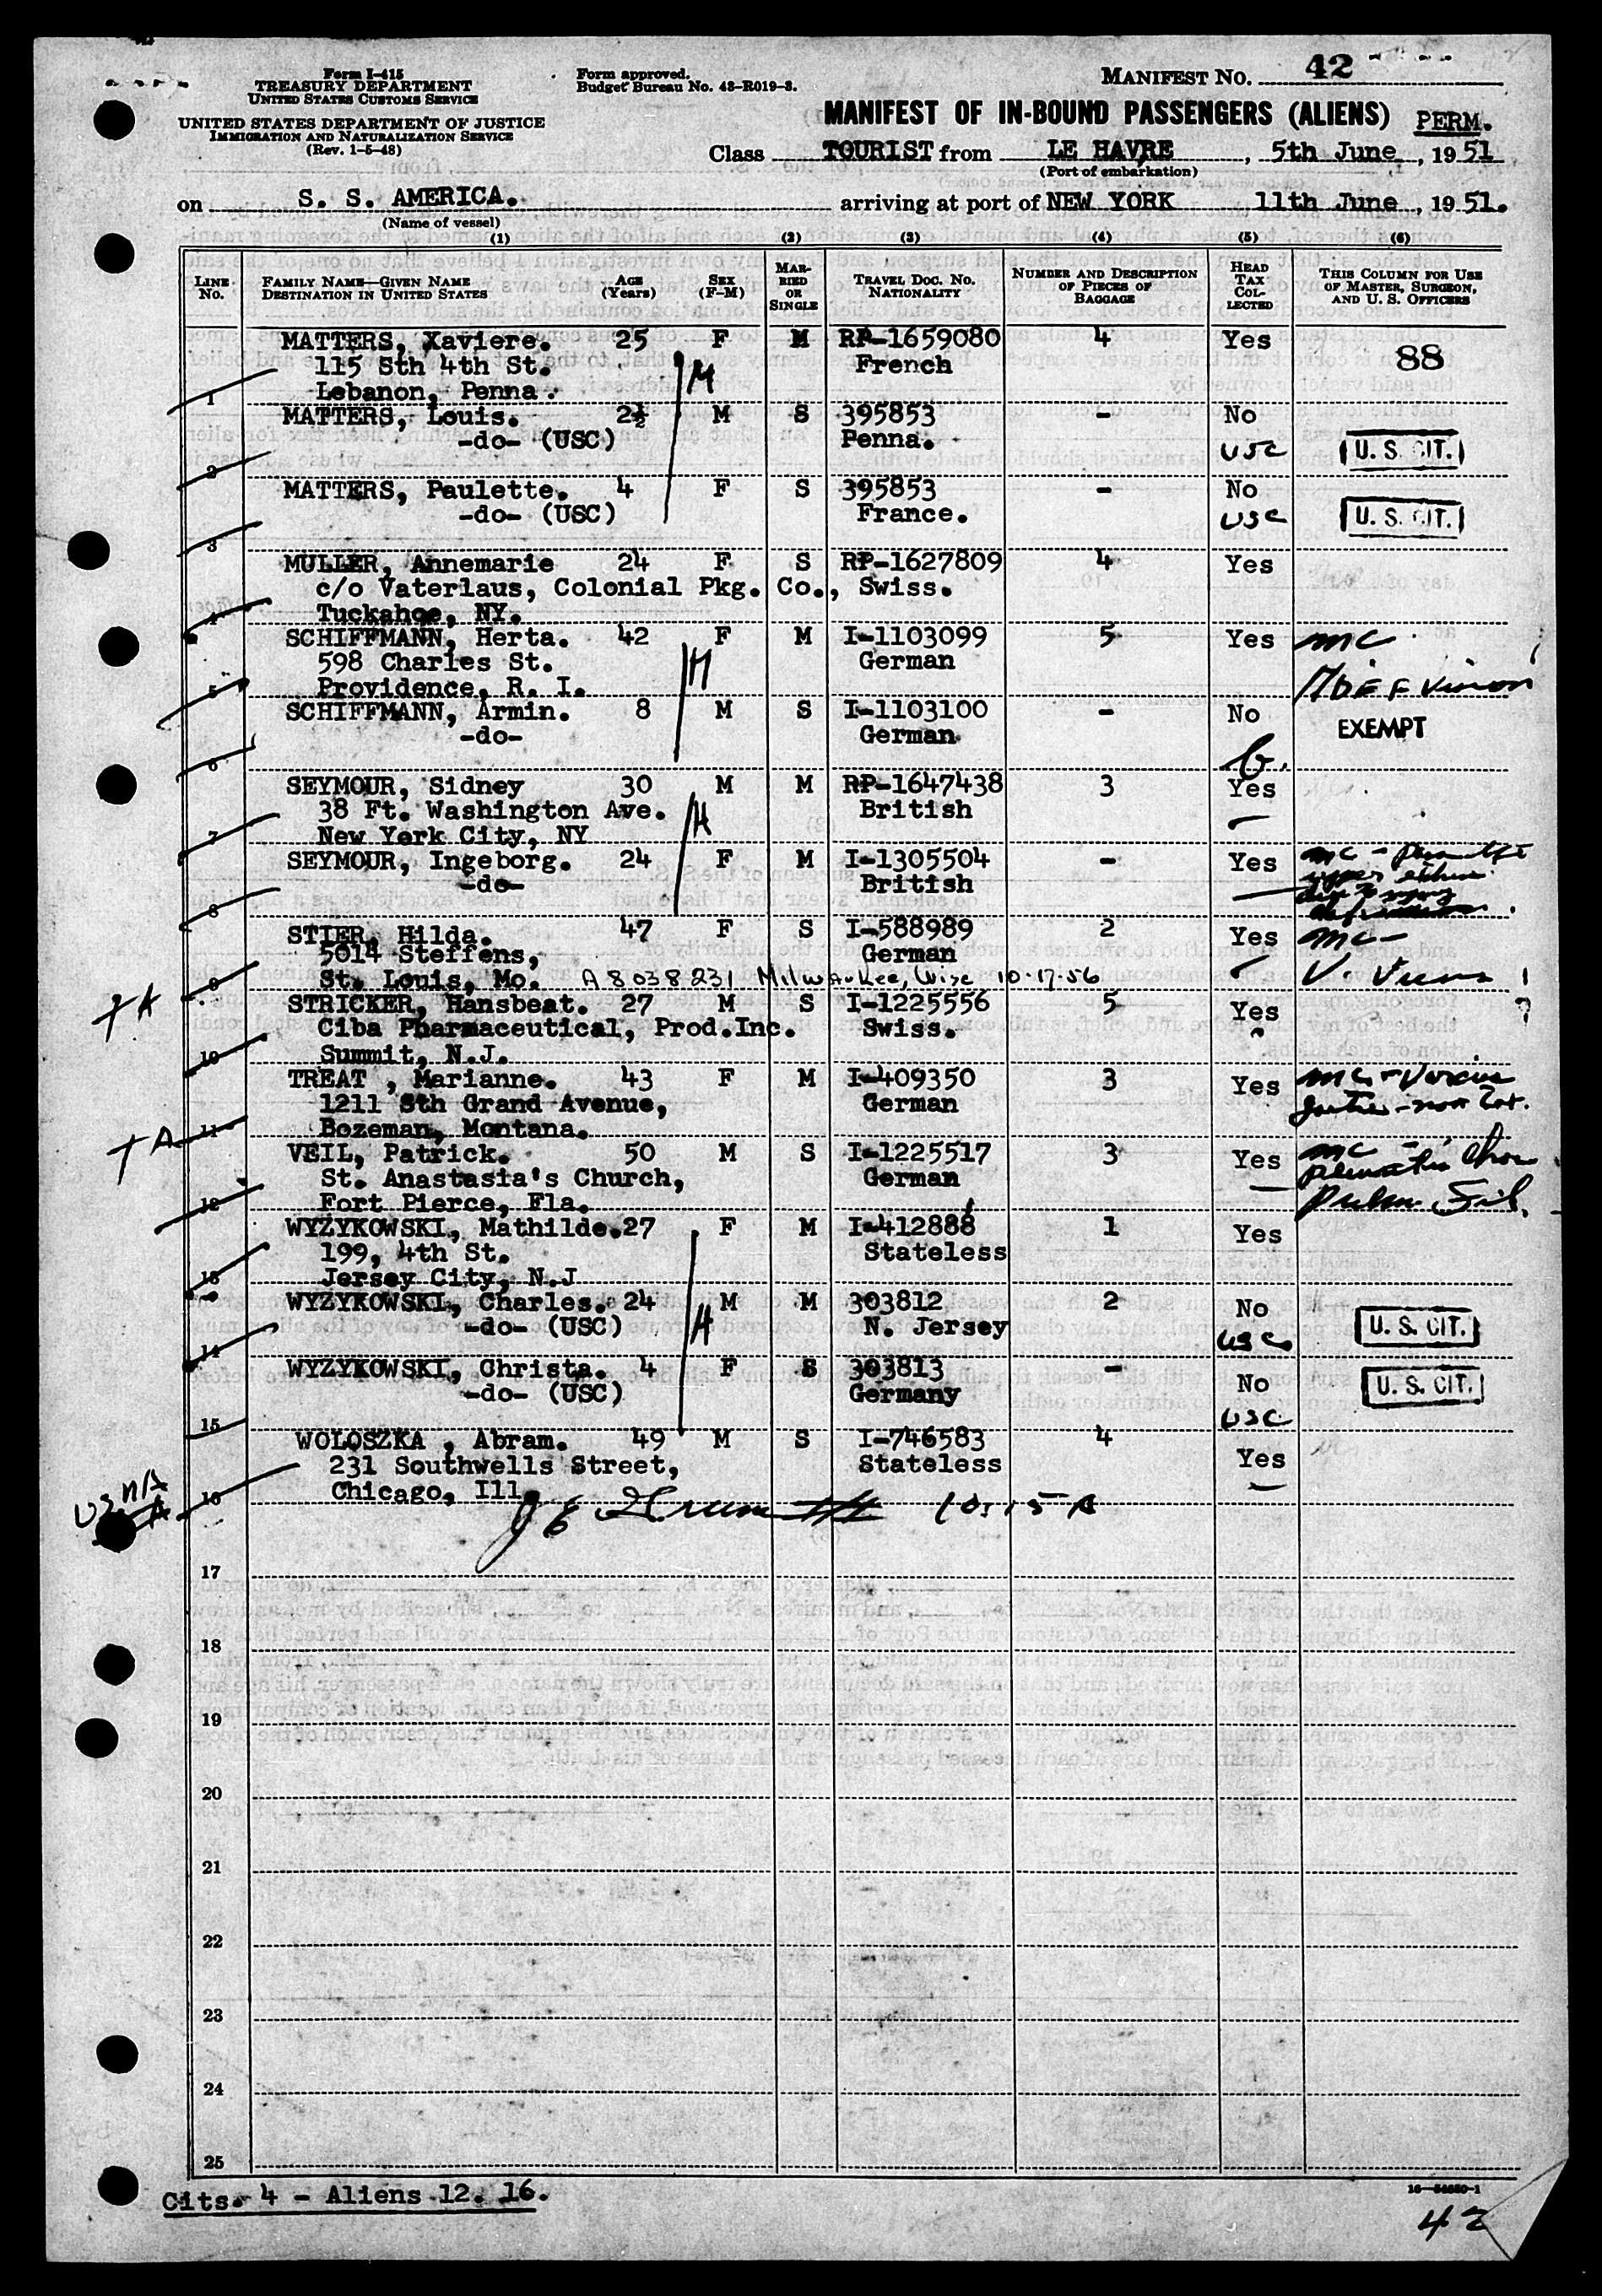 Form I-415
TREASURY DEPARTMENT
UNITED STATES CUSTOMS SERVICE
UNITED STATES DEPARTMENT OF JUSTICE
IMMIGRATION AND NATURALIZATION SERVICE
(Rev. 1-5-48)
Form approved.
Budget Bureau No. 43-R019-3.
MANIFEST NO. 42
MANIFEST OF IN-BOUND PASSENGERS (ALIENS) PERM.
Class TOURIST from LE HAVRE, 5th June, 1951
(Port of embarkation)
on S. S. AMERICA. arriving at port of NEW YORK 11th June, 1951.
(Name of vessel)
(1) (2) (3) (4) (5) (6)
LINE No. FAMILY NAME—GIVEN NAME DESTINATION IN UNITED STATES AGE (Years) SEX (F-M) MARRIED OR SINGLE TRAVEL DOC. NO. NATIONALITY NUMBER AND DESCRIPTION OF PIECES OF BAGGAGE HEAD TAX COLLECTED THIS COLUMN FOR USE OF MASTER, SURGEON, AND U. S. OFFICERS
MATTERS, Xaviere. 25 F M RP-1659080 4 Yes 88
115 Sth 4th St. French
1 Lebanon, Penna. M
MATTERS, Louis. 2½ M S 395853 - No
-do- (USC) Penna. USC U. S. CIT.
2
MATTERS, Paulette. 4 F S 395853 - No
-do- (USC) France. USC U. S. CIT.
3
MULLER, Annemarie 24 F S RP-1627809 4 Yes
c/o Vaterlaus, Colonial Pkg. Co., Swiss.
4 Tuckahoe, NY.
SCHIFFMANN, Herta. 42 F M I-1103099 5 Yes MC
598 Charles St. German
5 Providence, R. I. M Def Vision
SCHIFFMANN, Armin. 8 M S I-1103100 - No EXEMPT
-do- German
6
SEYMOUR, Sidney 30 M M RP-1647438 3 Yes
38 Ft. Washington Ave. British
7 New York City, NY M
SEYMOUR, Ingeborg. 24 F M I-1305504 - Yes MC -
-do- British
8
STIER, Hilda. 47 F S I-588989 2 Yes MC-
5014 Steffens, German
9 St. Louis, Mo. A8038231 Milwaukee, Wisc 10-17-56
TA STRICKER, Hansbeat. 27 M S I-1225556 5 Yes
Ciba Pharmaceutical, Prod.Inc. Swiss.
10 Summit, N.J.
TREAT , Marianne. 43 F M I-409350 3 Yes MC -
1211 Sth Grand Avenue, German
11 Bozeman, Montana.
TA VEIL, Patrick. 50 M S I-1225517 3 Yes MC -
St. Anastasia's Church, German
12 Fort Pierce, Fla.
WYZYKOWSKI, Mathilde. 27 F M I-412888 1 Yes
199, 4th St. Stateless
13 Jersey City, N.J
WYZYKOWSKI, Charles. 24 M M 303812 2 No
-do- (USC) M N. Jersey USC U. S. CIT.
14
WYZYKOWSKI, Christa. 4 F S 303813 - No
-do- (USC) Germany USC U. S. CIT.
15
WOLOSZKA , Abram. 49 M S I-746583 4 Yes
231 Southwells Street, Stateless
16 Chicago, Ill.
10:15 A
17
18
19
20
21
22
23
24
25
Cits. 4 - Aliens 12. 16.
16—54650-1
42